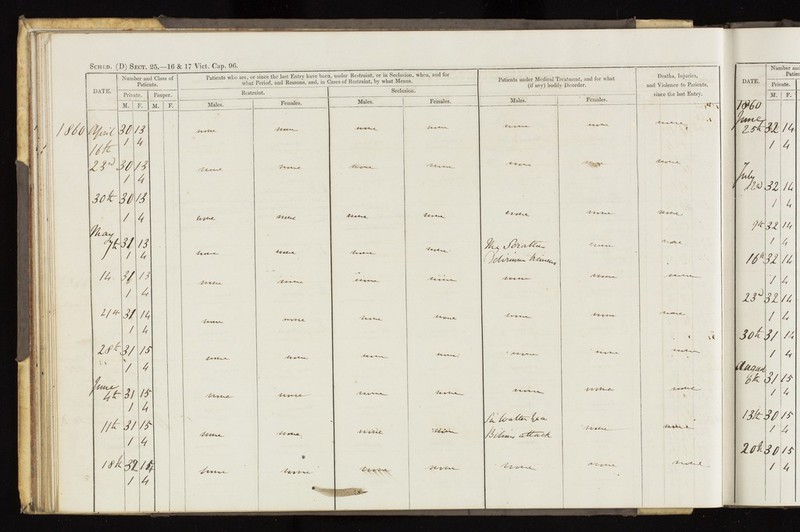 SCHED. (D) SECT. 25,—16 & 17 Vict. Cap. 96.
DATE. Number and Class of Patients. Patients who are, or since the last Entry have been, under Restraint, or in Seclusion, when, and for what Period, and Reasons, and, in Cases of Restraint, by what Means. Patients under Medical Treatment, and for what (if any) bodily Disorder. Deaths, Injuries, and Violence to Patients, since the last Entry.
Private. Pauper. Restraint. Seclusion.
M. F. M. F. Males. Females. Males. Females. Males. Females.
1860 April 30 13
16th 1 4 none none none none none none none
23rd 30 13
1 4 none none none none none none none
30th 30 13
1 4 none none none none none none none
May
7th 31 13 Mr
1 4 none none none none none none
14 31 13
1 4 none none none none none none none
21st 31 14
1 4 none none none none none none none
28th 31 15
1 4 none none none none none none none
June
4th 31 15
1 4 none none none none none none none
11th 31 15 Sir Walter
1 4 none none none none Bilious attack none none
18th 32 14
1 4 none none none none none none none
DATE. Number and
Private.
M. F.
1860
June
25th 32 14
1 4
July
2nd 32 14
1 4
9th 32 14
1 4
16th 32 14
1 4
23rd 32 14
1 4
30th 31 14
1 4
August
6th 31 15
1 4
13th 30 15
1 4
20th 30 15
1 4